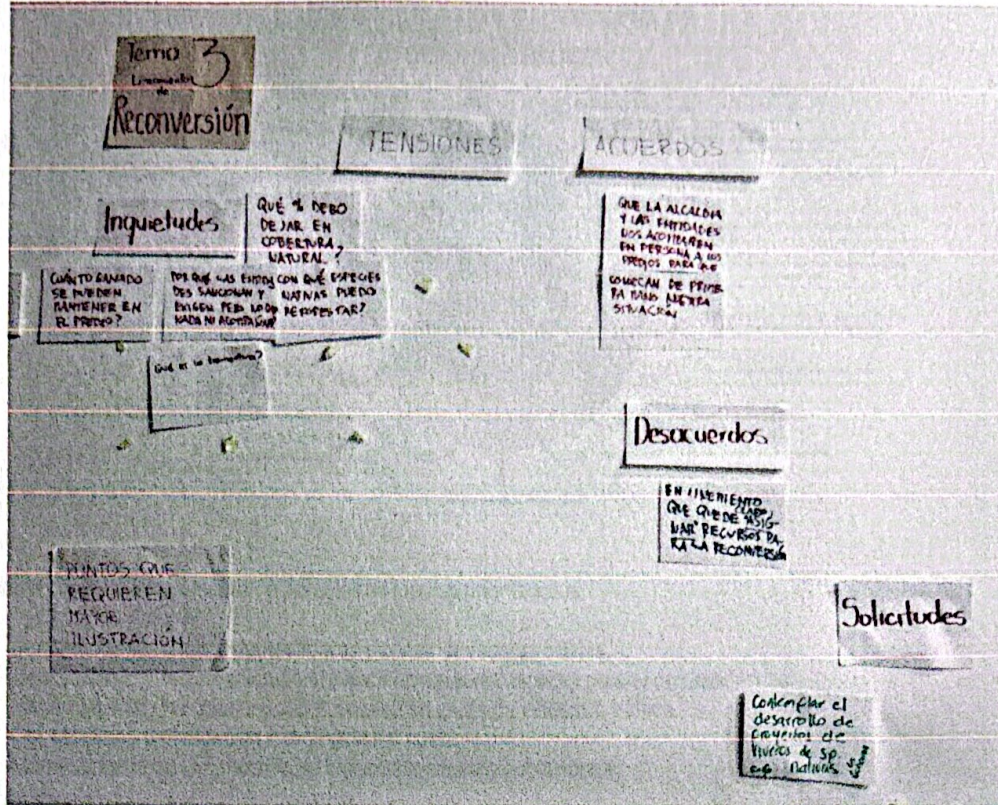 Tema 3
Lineamientos
de
Reconversión
TENSIONES
ACUERDOS
Inquietudes
QUÉ % DEBO
DEJAR EN
COBERTURA
NATURAL?
CUÁNTO GANADO
SE PUEDEN
MANTENER EN
EL PREDIO?
POR QUÉ LAS ENTIDA
DES SANCIONAN Y
EXIGEN PERO NO DAN
NADA NI ACOMPAÑAN?
CON QUÉ ESPECIES
NATIVAS PUEDO
REFORESTAR?
Qué es la
QUE LA ALCALDIA
Y LAS ENTIDADES
NOS ACOMPAÑEN
EN PERSONA A LOS
PREDIOS PARA QUE
CONOZCAN DE PRIME
RA MANO NUESTRA
SITUACIÓN
Desacuerdos
EN
QUE QUEDE CLARO,
ASIG
NAR RECURSOS PA-
RA LA RECONVERSIÓN
PUNTOS QUE
REQUIEREN
MAYOR
ILUSTRACIÓN
Solicitudes
Contemplar el
desarrollo de
proyectos de
Viveros de sp.
nativas